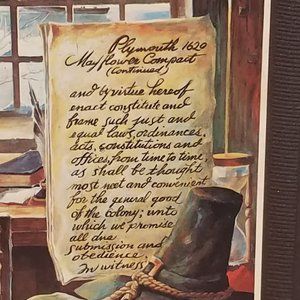 Plymouth 1620
Mayflower Compact
(Continued)
and by virtue hereof
enact constitute and
frame such just and
equal laws, ordinances,
acts, constitutions and
offices, from time to time,
as shall be thought
most meet and convenient
for the general good
of the colony; unto
which we promise
all due
submission and
obedience.
In witness